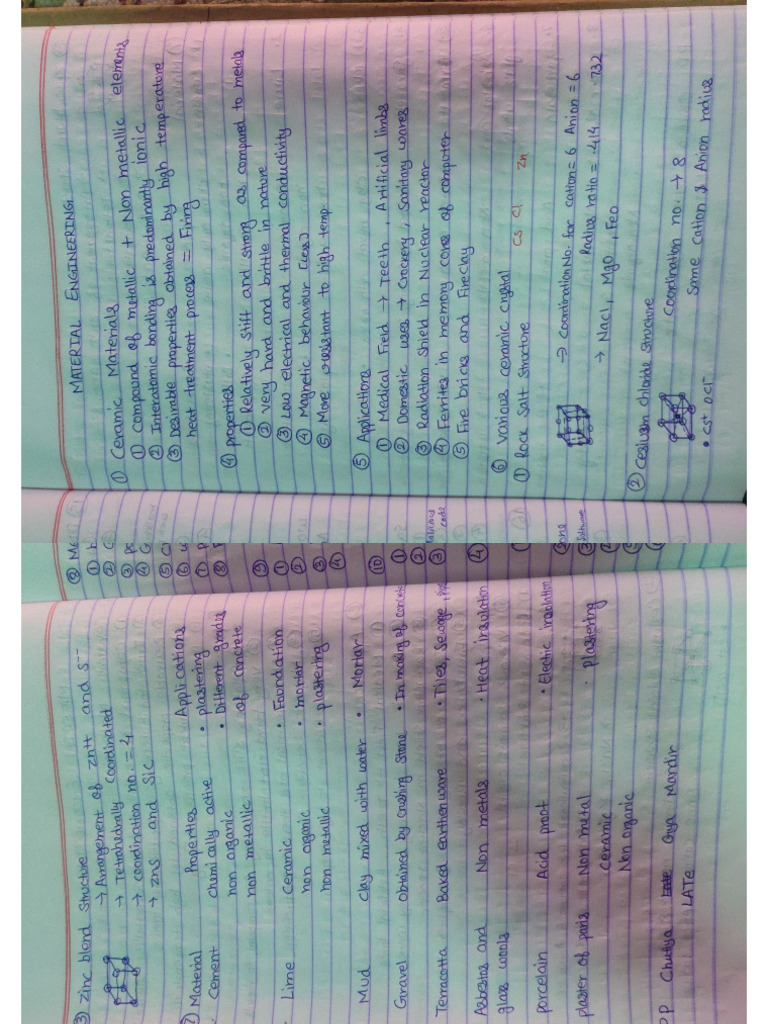 MATERIAL ENGINEERING.
① Ceramic Materials
① compound of metallic + Non metallic elements
② Interatomic bonding is predominantly ionic
③ Desirable properties obtained by high temperature
heat treatment process = Firing
④ properties
① Relatively stiff and strong as compared to metals
② very hard and brittle in nature
③ Low electrical and thermal conductivity
④ Magnetic behaviour [Less]
⑤ More resistant to high temp.
⑤ Applications
① Medical Field → Teeth, Artificial limbs
② Domestic uses → Crockery, Sanitary wares
③ Radiation shield in Nuclear reactor
④ Ferrites in memory cores of computer
⑤ Fire bricks and Fireclay
⑥ various ceramic crystal
① Rock Salt Structure Cs Cl Zn
→ Coordination No. for cation = 6 Anion = 6
Radius ratio = .414 732
→ NaCl, MgO, FeO
② Cesium chloride structure
Coordination no. → 8
Same cation & Anion radius
• Cs+ ○ Cl-
③ Zinc blend Structure
→ Arrangement of zn++ and S--
→ Tetrahedrally Coordinated
→ coordination no. = 4
→ zns and Sic
⑦ Material Properties Applications
Cement chemically active • plastering
non organic • Different grades
non metallic of concrete
Lime Ceramic • Foundation
non oganic • mortar
non metallic • plastering
Mud Clay mixed with water • Mortar
Gravel Obtained by crushing Stone • In making of concrete
Terracotta Baked earthenware • Tiles, Sewage
Asbestos and Non metals • Heat insulation
glass wools
porcelain Acid proof • Electric insulation
plaster of paris Non metal • plastering
Ceramic
Non organic
Chutiya Gya Mandir
LATe